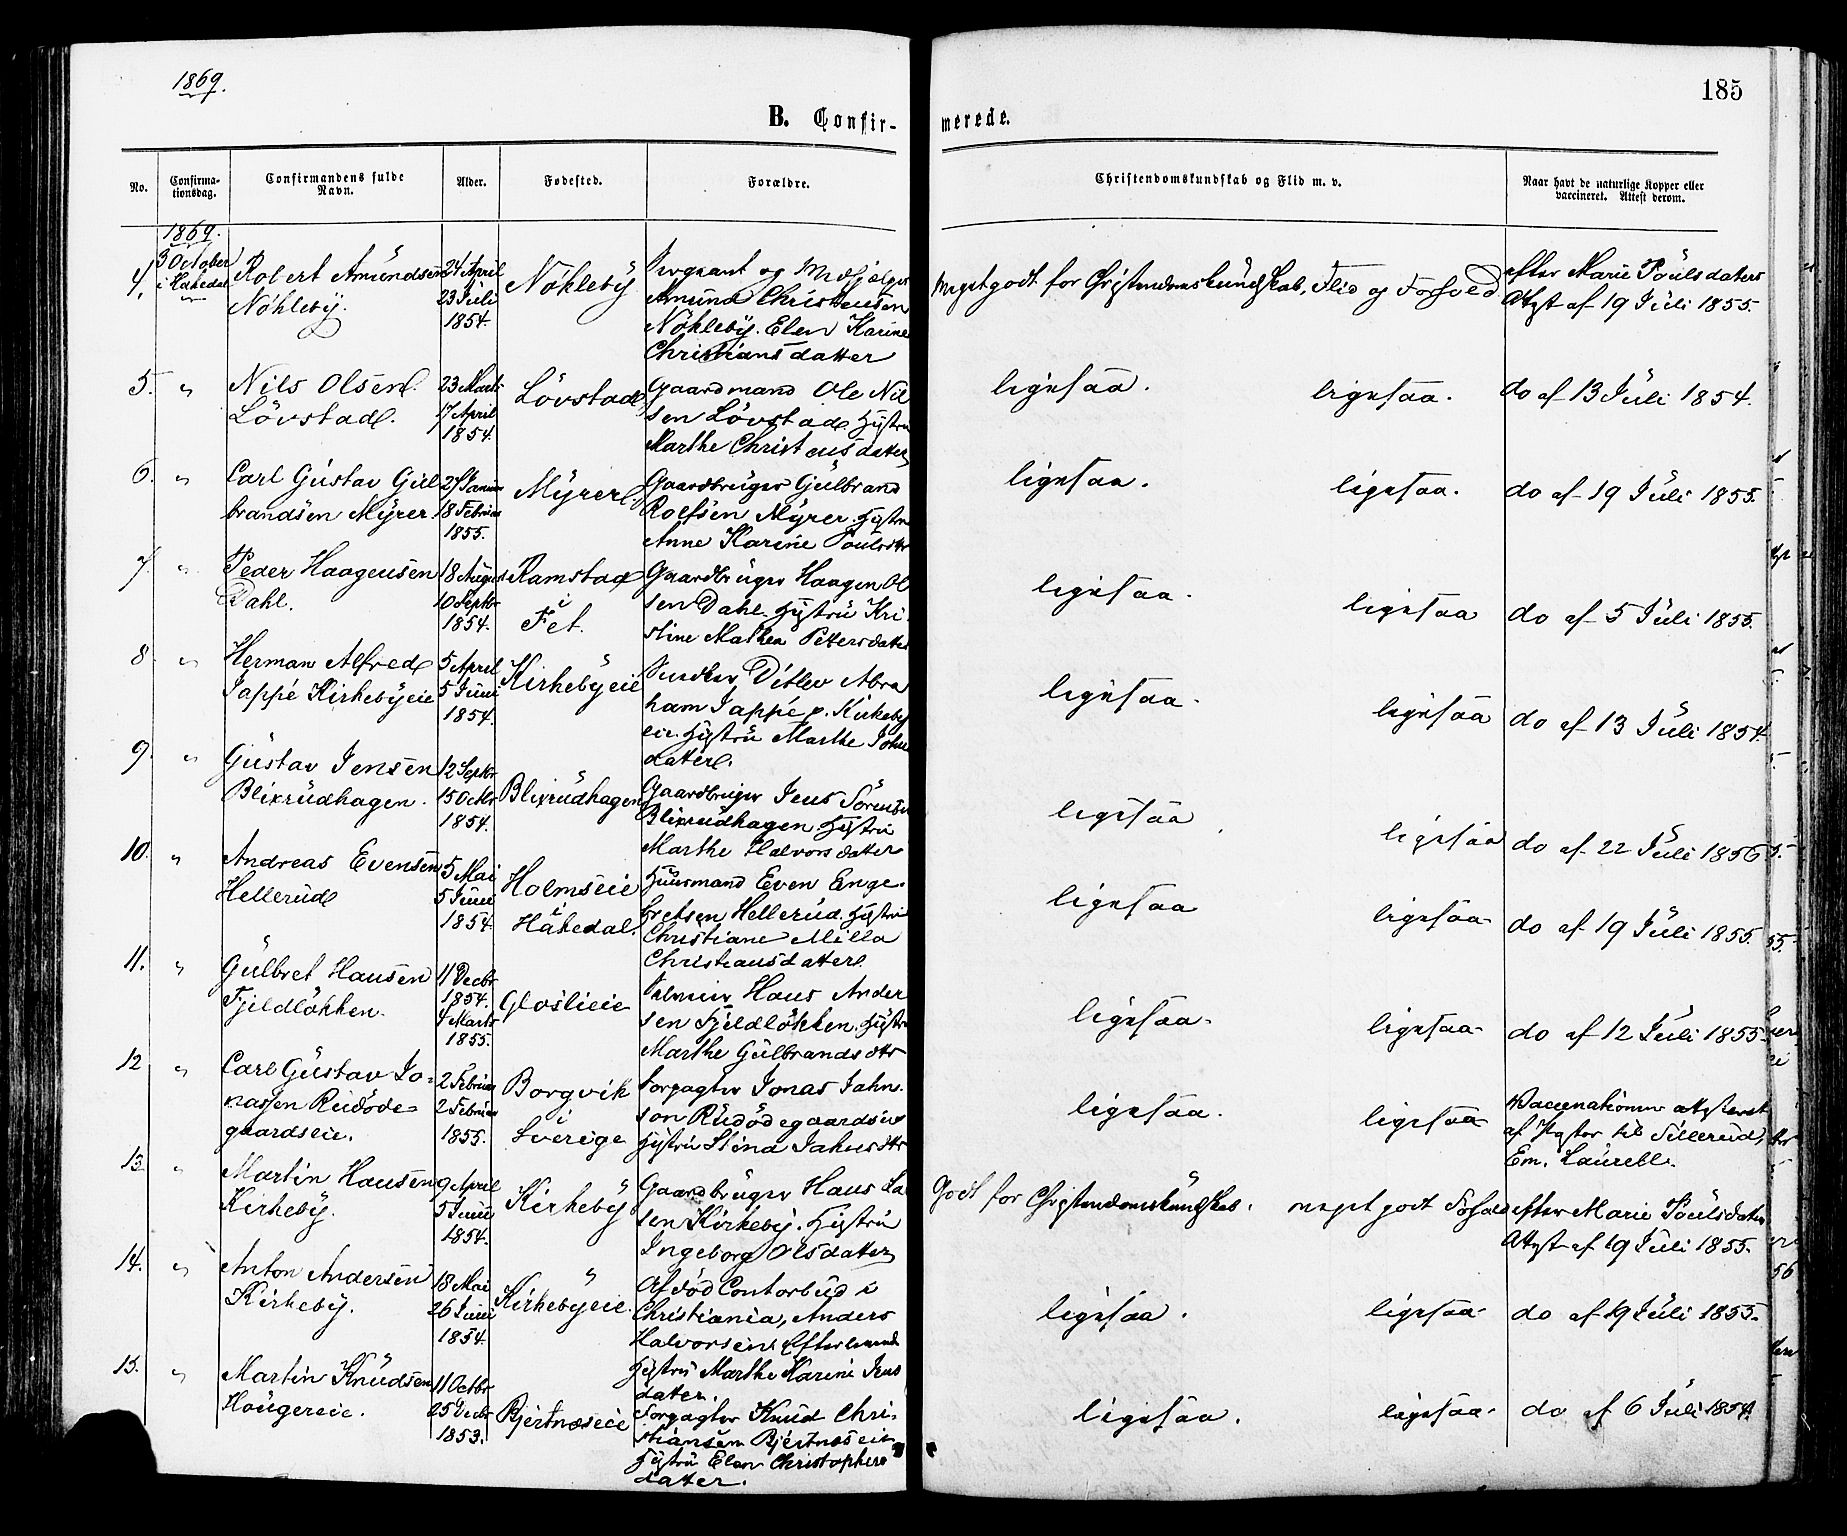 1869.
185
B. Confir-
merede.
No.
Confirma-
tionsdag.
Confirmandens fulde
Navn.
Alder.
Fødested.
Forældre.
Christendomskundskab og Flid m. v.
Naar havt de naturlige Kopper eller
vaccineret. Attest derom.
1869.
4. 3 October
i Hakedal
Robert Amundsen
Nökleby.
24 April
23 Juli
1854.
Nökleby
Sergeant og
Amund Christensen
Nökleby. Elen Karine
Christiansdatter
Meget godt for Christendomskundskab, Flid og Forhold
efter Marie Poulsdaters
Attest af 19 Juli 1855.
5. "
Nils Olsen
Lövstad.
23 Marts
17 April
1854.
Lövstad
Gaardmand Ole Nil
sen Lövstad Hustru
Marthe Christensdatter
ligesaa.
ligesaa.
do af 13 Juli 1854.
6. "
Carl Gustav Gul
brandsen Myrer.
27 Januar
18 Februar
1855.
Myrer.
Gaardbruger Gulbrand
Rolfsen Myrer. Hustru
Anne Karine Poulsdtr
ligesaa.
ligesaa.
do af 19 Juli 1855.
7. "
Peder Haagensen
Dahl.
18 August
10 Septbr
1854.
Ramstad
i
Fet.
Gaardbruger Haagen Ol
sen Dahl. Hustru Kri-
stine Mathea Pettersdatter
ligesaa.
ligesaa
do af 5 Juli 1855.
8. "
Herman Alfred
Jappé Kirkebyeie
5 April
5 Juni
1854.
Kirkebyeie
Snedker Ditlev Abra
ham Jappé p. Kirkeby
eie. Hustru Marthe Johns
datter.
ligesaa.
ligesaa
do af 13 Juli 1854.
9. "
Gustav Jensen
Blixrudhagen.
12 Septbr
15 Octbr
1854.
Blixrudhagen
Gaardbruger Jens Sörensen
Blixrudhagen Hustru
Marthe Halvorsdatter
ligesaa
ligesaa
do af 22 Juli 1856
10. "
Andreas Evensen
Hellerud
5 Mai
5 Juni
1854
Holmseie
i
Hakedal.
Huusmand Even Enge-
bretsen Hellerud. Hustru
Christiane Milla
Christiansdatter.
ligesaa
ligesaa
do af 19 Juli 1855.
11. "
Gulbret Hansen
Fjeldlökken.
11 Decbr
1854.
4 Marts
1855.
Glosliеie
Hans Ander
sen Fjeldlökken. Hustru
Marthe Gulbrandsdtr
ligesaa.
ligesaa
do af 12 Juli 1855
12 "
Carl Gustav Jo-
nassen Rudöde-
gaardseie.
2 Februar
2 Februar
1855.
Borgvik
i
Sverige
Forpagter Jonas Jahn-
son Rudödegaardseie
Hustru Stina Jahnsdtr
ligesaa.
ligesaa
Vaccinationen attesteret
af Pastor til Sillerud,
Em. Laurell.
13. "
Martin Hansen
Kirkeby.
9 April
5 Juni
1854.
Kirkeby
Gaardbruger Hans La
sen Kirkeby. Hustru
Ingeborg Olsdatter
Godt for Christendomskundskab.
meget godt Forhold
efter Marie Poulsdaters
Attest af 19 Juli 1855.
14. "
Anton Andersen
Kirkeby.
18 Mai
26 Juni
1854.
Kirkebyeie.
Afdöd Contorbud i
Christiania, Anders
Halvorsens Efterlevende
Hustru Marthe Karine Jens
datter.
ligesaa.
ligesaa
do af 19 Juli 1855.
15. "
Martin Knudsen
Haugereie.
11 Octbr
25 Decbr
1853.
Bjertnæseie
Forpagter Knud Chri-
stiansen Bjertnæseie
Hustru Elen Christophers
datter.
ligesaa.
ligesaa.
do af 6 Juli 1854.